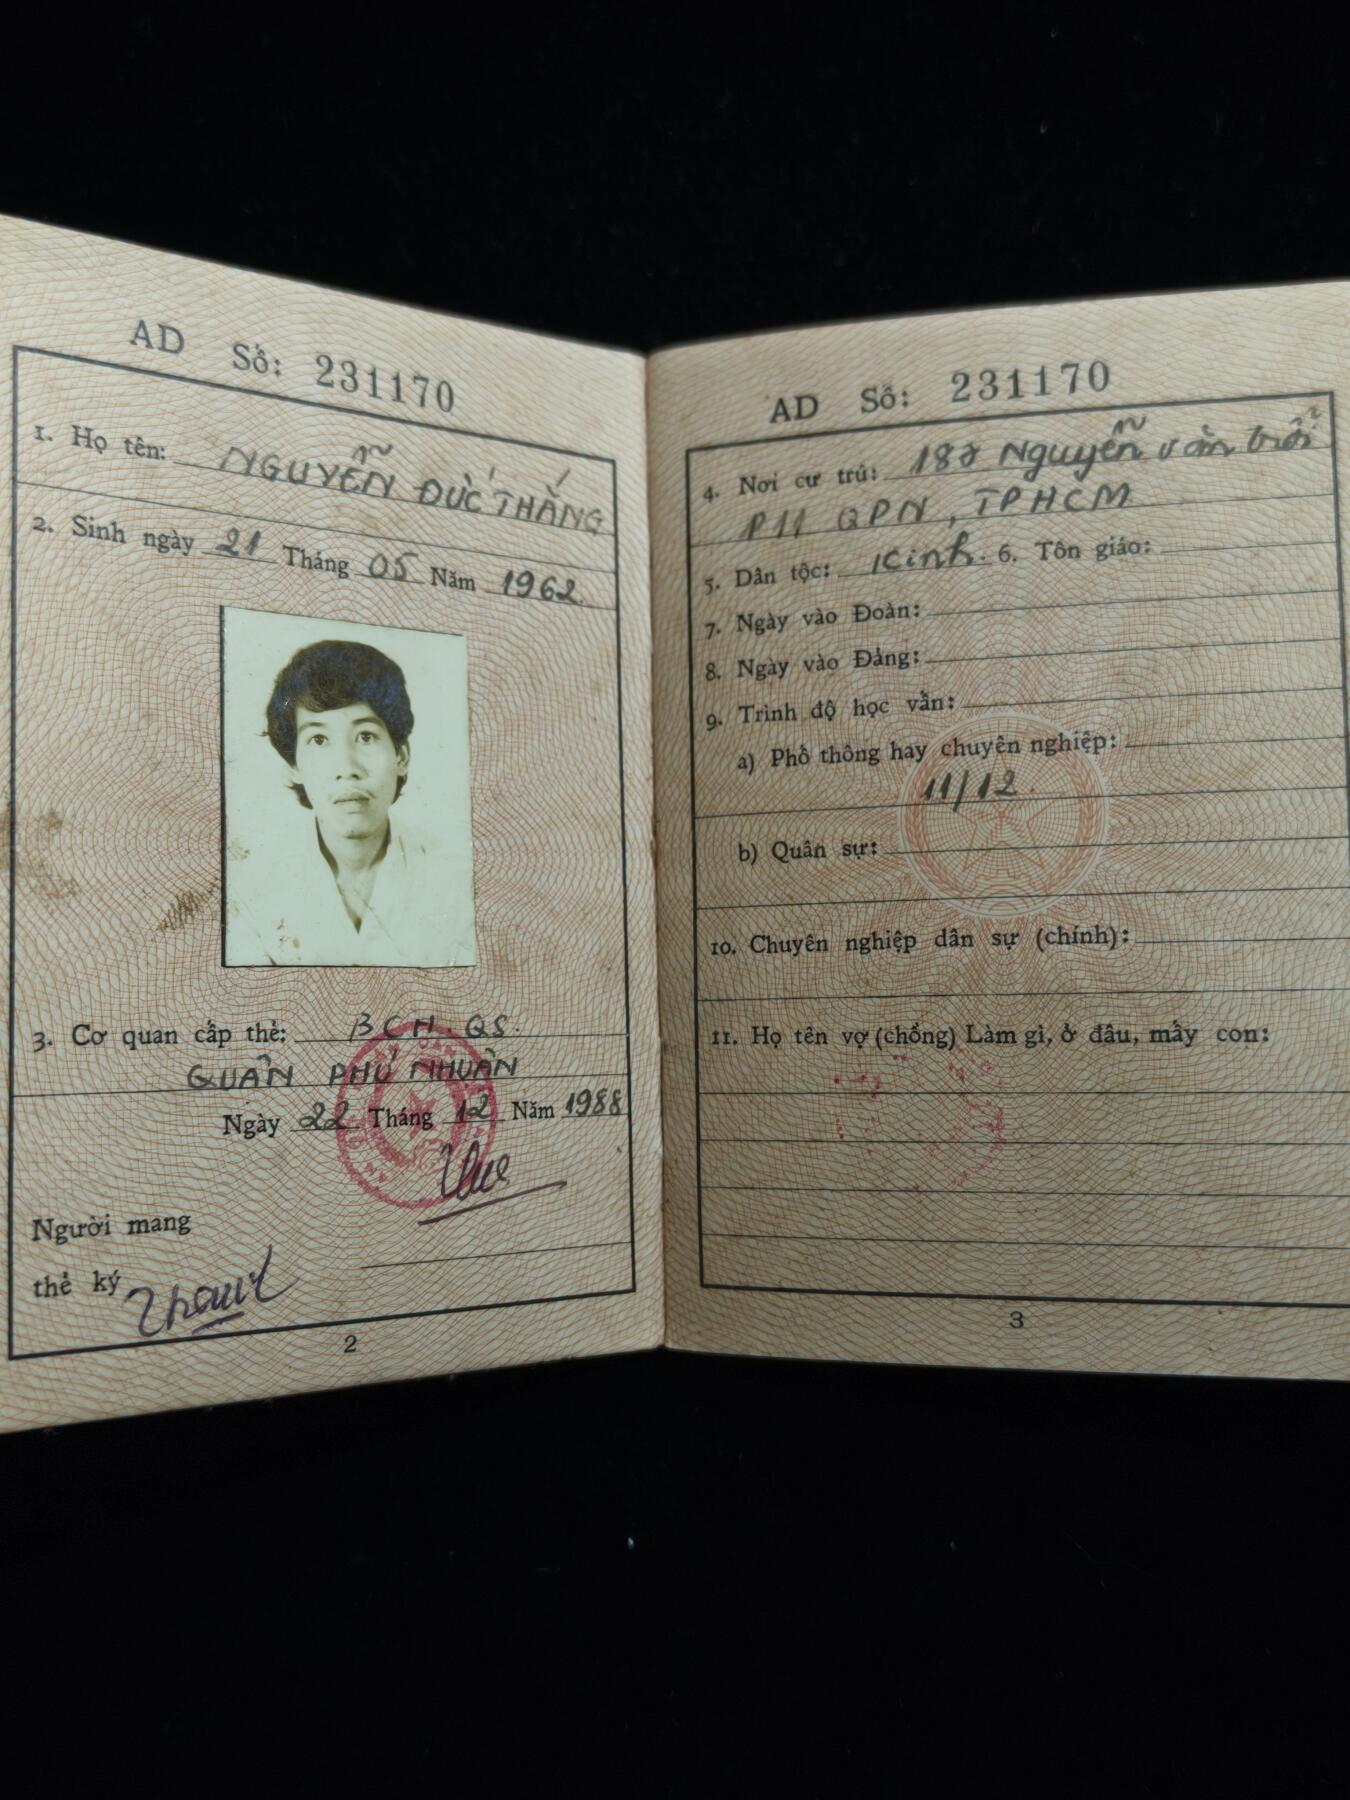 AD Số: 231170
1. Họ tên: NGUYỄN ĐỨC THẮNG
2. Sinh ngày 21 Tháng 05 Năm 1962
3. Cơ quan cấp thẻ: BCH.QS.
QUẬN PHÚ NHUẬN
Ngày 22 Tháng 12 Năm 1988
Người mang
thẻ ký
2
AD Số: 231170
4. Nơi cư trú: Nguyễn văn trỗi
P11 QPN, TPHCM
5. Dân tộc: Kinh. 6. Tôn giáo:
7. Ngày vào Đoàn:
8. Ngày vào Đảng:
9. Trình độ học vấn:
a) Phổ thông hay chuyên nghiệp:
11/12
b) Quân sự:
10. Chuyên nghiệp dân sự (chính):
11. Họ tên vợ (chồng) Làm gì, ở đâu, mấy con:
3